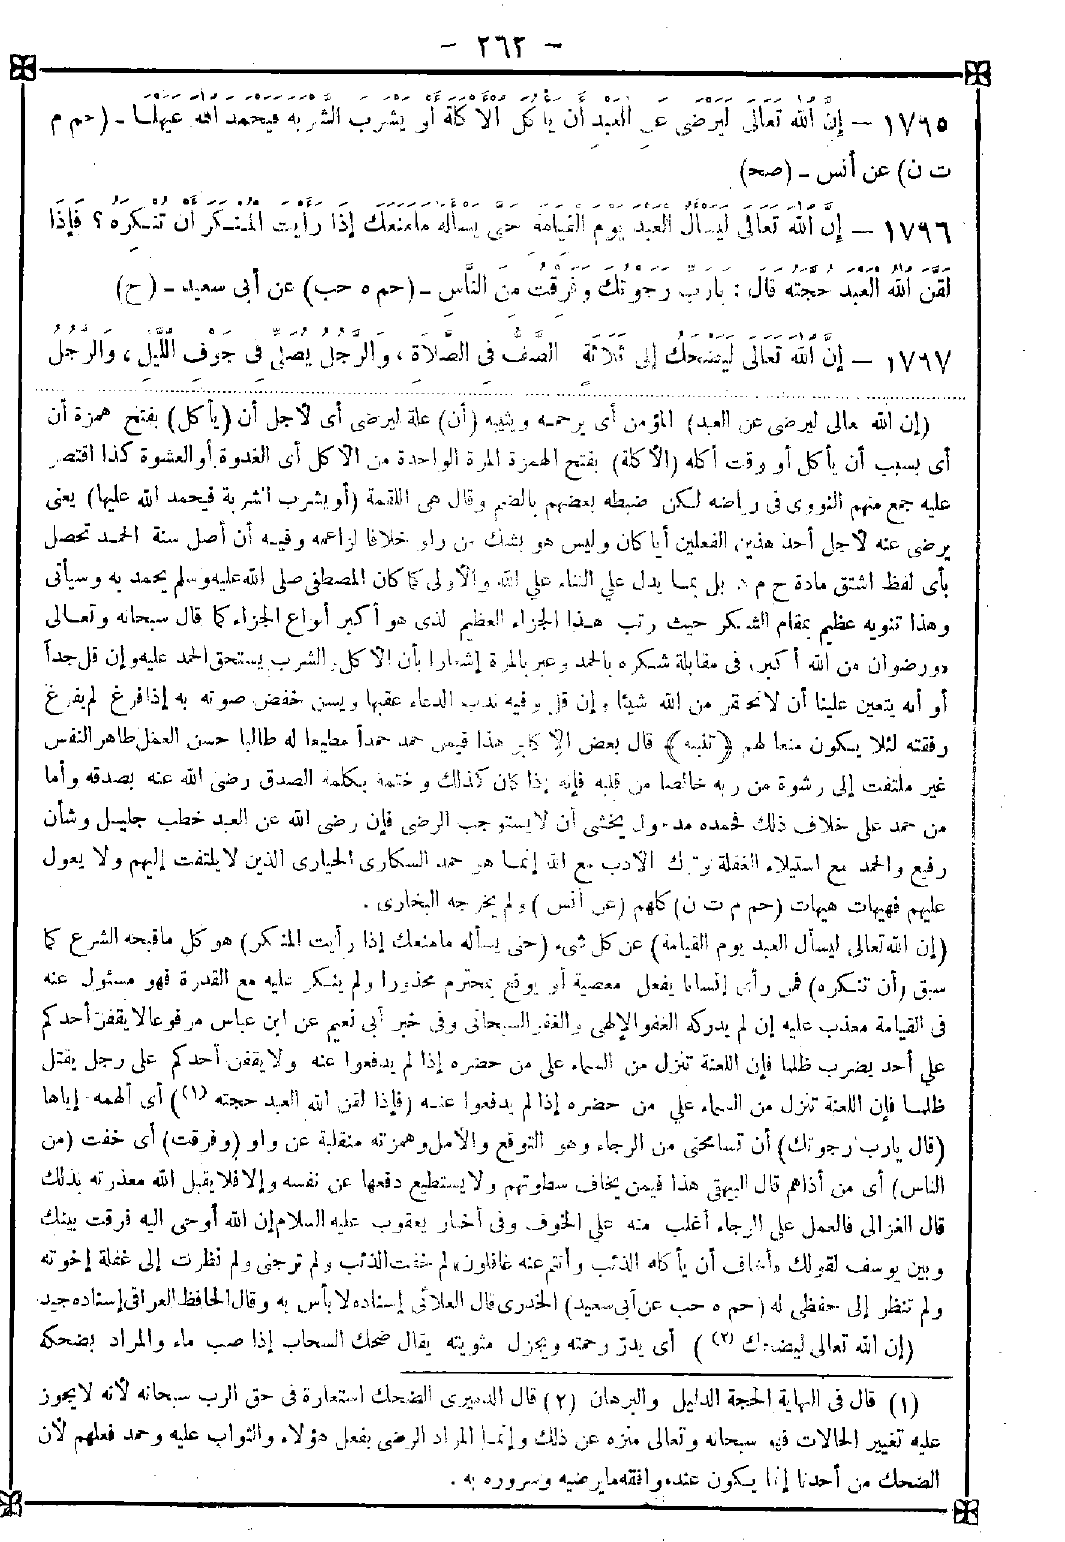 - ٢٦٢ -
١٧٩٥ - إِنَّ اللّٰهَ تَعَالَى لَيَرْضَى عَنِ الْعَبْدِ أَنْ يَأْكُلَ الْأَكْلَةَ أَوْ يَشْرَبَ الشَّرْبَةَ فَيَحْمَدَ اللّٰهَ عَلَيْهَا - (حم م
ت ن) عن أنس - (صح)
١٧٩٦ - إِنَّ اللّٰهَ تَعَالَى لَيَسْأَلُ الْعَبْدَ يَوْمَ الْقِيَامَةِ حَتَّى يَسْأَلَهُ مَا مَنَعَكَ إِذَا رَأَيْتَ الْمُنْكَرَ أَنْ تُنْكِرَهُ؟ فَإِذَا
لَقَّنَ اللّٰهُ الْعَبْدَ حُجَّتَهُ قَالَ: يَارَبِّ رَجَوْتُكَ وَفَرِقْتُ مِنَ النَّاسِ - (حم ه حب) عن أبى سعيد - (ح)
١٧٩٧ - إِنَّ اللّٰهَ تَعَالَى لَيَضْحَكُ إِلَى ثَلَاثَةٍ الصَّفُّ فِى الصَّلَاةِ، وَالرَّجُلُ يُصَلِّى فِى جَوْفِ اللَّيْلِ، وَالرَّجُلُ
(إن الله تعالى ليرضى عن العبد) المؤمن أى يرحمه ويثيبه (أن) علة ليرضى أى لأجل أن (يأكل) بفتح همزة أن
أى بسبب أن يأكل أو وقت أكله (الأكلة) بفتح الهمزة المرة الواحدة من الأكل أى الغدوة أو العشوة كذا اقتصر
عليه جمع منهم النووى فى رياضه لكن ضبطه بعضهم بالضم وقال هى اللقمة (أو يشرب الشربة فيحمد الله عليها) يعنى
يرضى عنه لأجل أحد هذين الفعلين أيا كان وليس هو بشك من راو خلافا لزاعمه وفيه أن أصل سنة الحمد تحصل
بأى لفظ اشتق مادة ح م د بل بما يدل على الثناء على الله والأولى كما كان المصطفى صلى الله عليه وسلم يحمد به وسيأتى
وهذا تنويه عظيم بمقام الشكر حيث رتب هذا الجزاء العظيم الذى هو أكبر أنواع الجزاء كما قال سبحانه وتعالى
«ورضوان من الله أكبر» فى مقابلة شكره بالحمد وعبر بالمرة إشعارا بأن الأكل والشرب يستحق الحمد عليه وإن قل جداً
أو أنه يتعين علينا أن لا نحتقر من الله شيئا وإن قل وفيه ندب الدعاء عقبها ويسن خفض صوته به إذا فرغ لم يفرغ
رفقته لئلا يكون منعا لهم ﴿تنبيه﴾ قال بعض الأكابر هذا فيمن حمد حمداً مطيعا له طالبا حسن العمل طاهر النفس
غير ملتفت إلى رشوة من ربه خالصا من قلبه فإنه إذا كان كذلك وختمه بكلمة الصدق رضى الله عنه بصدقه وأما
من حمد على خلاف ذلك فحمده مدخول يخشى أن لا يستوجب الرضى فإن رضى الله عن العبد خطب جليل وشأن
رفيع والحمد مع استيلاء الغفلة وترك الأدب مع الله إنما هو حمد السكارى الحيارى الذين لا يلتفت إليهم ولا يعول
عليهم فهيهات هيهات (حم م ت ن) كلهم (عن أنس) ولم يخرجه البخارى.
(إن الله تعالى ليسأل العبد يوم القيامة) عن كل شىء (حتى يسأله ما منعك إذا رأيت المنكر) هو كل ما قبحه الشرع كما
سبق (أن تنكره) فمن رأى إنسانا يفعل معصية أو يوقع بمحترم محذورا ولم ينكر عليه مع القدرة فهو مسئول عنه
فى القيامة معذب عليه إن لم يدركه العفو الإلهى والغفر السبحانى وفى خبر أبى نعيم عن ابن عباس مرفوعا لا يقفن أحدكم
على أحد يضرب ظلما فإن اللعنة تنزل من السماء على من حضره إذا لم يدفعوا عنه ولا يقفن أحدكم على رجل يقتل
ظلما فإن اللعنة تنزل من السماء على من حضره إذا لم يدفعوا عنه (فإذا لقن الله العبد حجته (١)) أى ألهمه إياها
(قال يارب رجوتك) أن تسامحنى من الرجاء وهو التوقع والأمل وهمزته منقلبة عن واو (وفرقت) أى خفت (من
الناس) أى من أذاهم قال البيهقى هذا فيمن يخاف سطوتهم ولا يستطيع دفعها عن نفسه وإلا فلا يقبل الله معذرته بذلك
قال الغزالى فالعمل على الرجاء أغلب منه على الخوف وفى أخبار يعقوب عليه السلام إن الله أوحى اليه فرقت بينك
وبين يوسف لقولك «أخاف أن يأكله الذئب وأنتم عنه غافلون» لم خفت الذئب ولم ترجنى ولم نظرت إلى غفلة إخوته
ولم تنظر إلى حفظى له (حم ه حب عن أبى سعيد) الخدرى قال العلائى إسناده لا بأس به وقال الحافظ العراقى إسناده جيد
(إن الله تعالى ليضحك (٢)) أى يدرّ رحمته ويجزل مثوبته يقال ضحك السحاب إذا صب ماء والمراد بضحكه
(١) قال فى النهاية الحجة الدليل والبرهان (٢) قال الدميرى الضحك استعارة فى حق الرب سبحانه لأنه لا يجوز
عليه تغيير الحالات فهو سبحانه وتعالى منزه عن ذلك وإنما المراد الرضى بفعل هؤلاء والثواب عليه وحمد فعلهم لأن
الضحك من أحدنا إنما يكون عند موافقة ما يرضيه وسروره به.